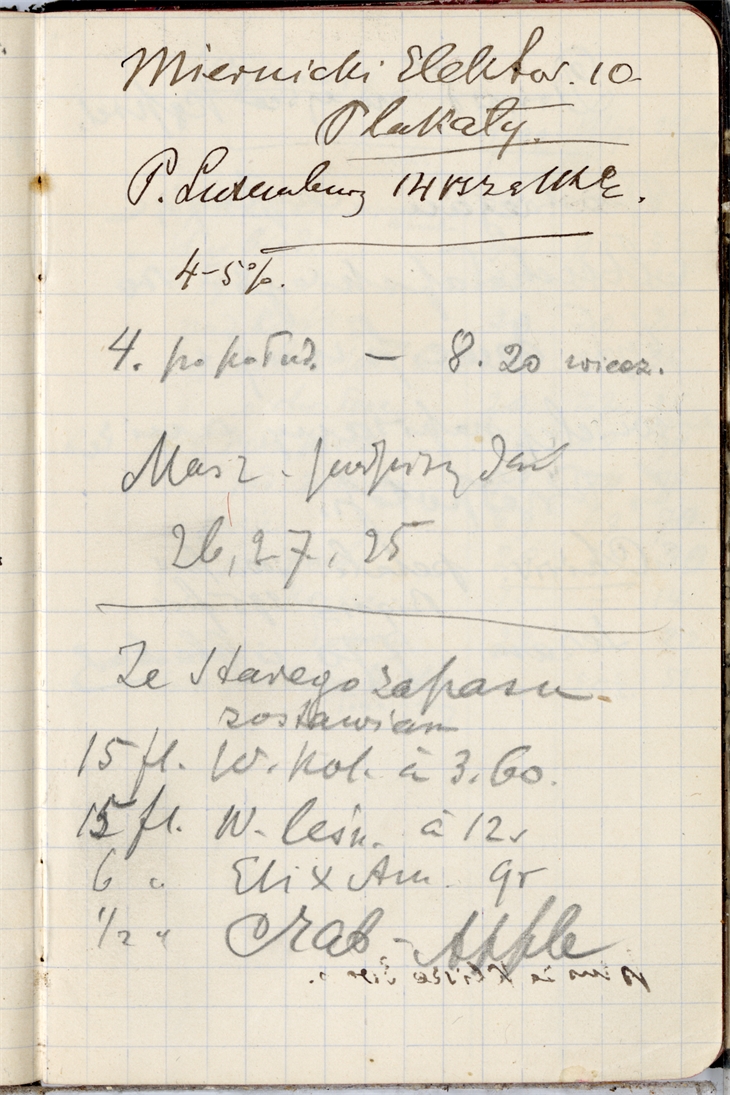 Miernicki Elektor. 10
Plakaty.
P. Luxemburg 14
4-5%.
4. popołud. — 8.20 wiecz.
Masz.
26, 27, 25
Ze starego zapasu
zostawiam
15 fl. W. Kol. à 3.60.
15 fl. W. leśn. à 12r
6 " Elix Am. 9r
1/2 " Crab-Apple